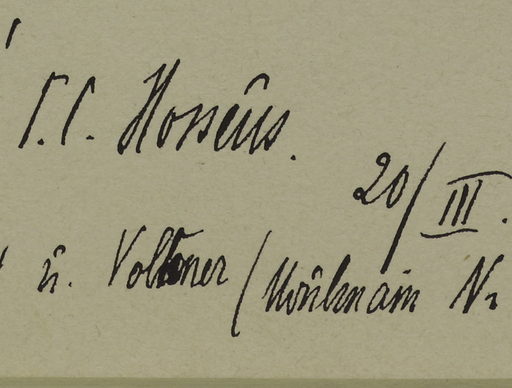 C. C. Hosséus.
20/III.
u. Volkner (Moulmain Nr